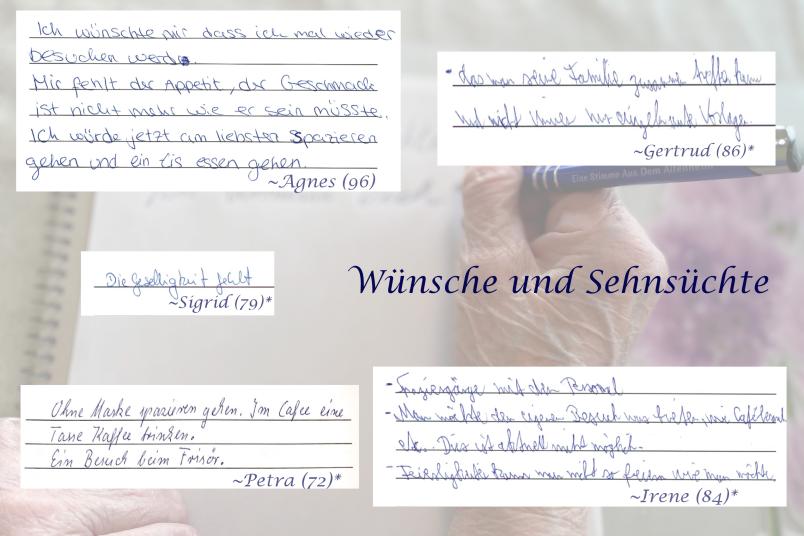 Ich wünschte mir dass ich mal wieder
besuchen werde.
Mir fehlt der Appetit, der Geschmack
ist nicht mehr wie er sein müsste.
Ich würde jetzt am liebsten Spazieren
gehen und ein Eis essen gehen.
~Agnes (96)
- das man seine Familie zusamme treffen kann
und nicht immer nur eingeladene
~Gertrud (86)*
Eine Stimme Aus Dem Altenheim
Die Geselligkeit fehlt
~Sigrid (79)*
Wünsche und Sehnsüchte
Ohne Maske spazieren gehen. Im Cafee eine
Tasse Kaffee trinken.
Ein Besuch beim Frisör.
~Petra (72)*
- Spaziergänge mit dem Personal
- Man möchte den eigenen Besuch treffen, im
etc. Dies ist aktuell nicht möglich.
- Feierlichkeiten kann man nicht so feiern wie man möchte
~Irene (84)*